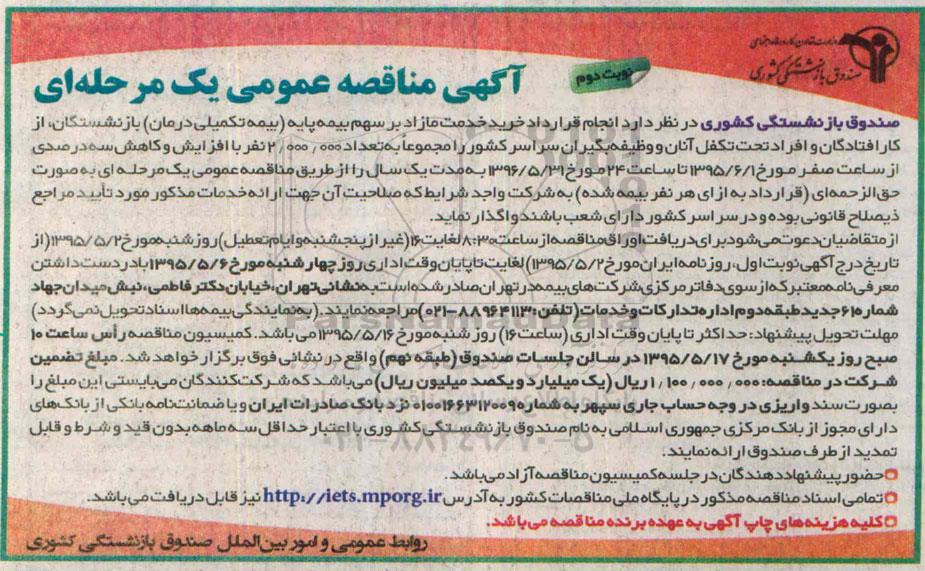 وزارت تعاون، کار و رفاه اجتماعی
صندوق بازنشستگی کشوری
نوبت دوم
آگهی مناقصه عمومی یک مرحله‌ای
صندوق بازنشستگی کشوری در نظر دارد انجام قرارداد خرید خدمت مازاد بر سهم بیمه پایه (بیمه تکمیلی درمان) بازنشستگان، از
کارافتادگان و افراد تحت تکفل آنان و وظیفه‌بگیران سراسر کشور را مجموعاً به تعداد ۲/۰۰۰/۰۰۰ نفر با افزایش و کاهش سه درصدی
از ساعت صفر مورخ ۱۳۹۵/۶/۱ تا ساعت ۲۴ مورخ ۱۳۹۶/۵/۳۱ به مدت یک سال را از طریق مناقصه عمومی یک مرحله ای به صورت
حق الزحمه‌ای (قرارداد به ازای هر نفر بیمه شده) به شرکت واجد شرایط که صلاحیت آن جهت ارائه خدمات مذکور مورد تأیید مراجع
ذیصلاح قانونی بوده و در سراسر کشور دارای شعب باشند واگذار نماید.
از متقاضیان دعوت می‌شود برای دریافت اوراق مناقصه از ساعت ۸:۳۰ لغایت ۱۶ (غیر از پنجشنبه و ایام تعطیل) روز شنبه مورخ ۱۳۹۵/۵/۲ (از
تاریخ درج آگهی نوبت اول، روزنامه ایران مورخ ۱۳۹۵/۵/۲) لغایت تا پایان وقت اداری روز چهارشنبه مورخ ۱۳۹۵/۵/۶ با در دست داشتن
معرفی نامه معتبر که از سوی دفاتر مرکزی شرکت های بیمه در تهران صادر شده است به نشانی تهران، خیابان دکتر فاطمی، نبش میدان جهاد
شماره ۶۱۰ جدید طبقه دوم اداره تدارکات و خدمات (تلفن: ۸۸۹۶۴۱۱۳-۰۲۱) مراجعه نمایند. (به نمایندگی بیمه‌ها اسناد تحویل نمی‌گردد)
مهلت تحویل پیشنهاد: حداکثر تا پایان وقت اداری (ساعت ۱۶) روز شنبه مورخ ۱۳۹۵/۵/۱۶ می باشد. کمیسیون مناقصه رأس ساعت ۱۰
صبح روز یکشنبه مورخ ۱۳۹۵/۵/۱۷ در سالن جلسات صندوق (طبقه نهم) واقع در نشانی فوق برگزار خواهد شد. مبلغ تضمین
شرکت در مناقصه: ۱/۱۰۰/۰۰۰/۰۰۰ ریال (یک میلیارد و یکصد میلیون ریال) می‌باشد که شرکت‌کنندگان می‌بایستی این مبلغ را
بصورت سند واریزی در وجه حساب جاری سپهر به شماره ۰۱۰۰۱۶۶۳۱۲۰۰۹ نزد بانک صادرات ایران و یا ضمانت‌نامه بانکی از بانک‌های
دارای مجوز از بانک مرکزی جمهوری اسلامی به نام صندوق بازنشستگی کشوری با اعتبار حداقل سه ماهه بدون قید و شرط و قابل
تمدید از طرف صندوق ارائه نمایند:
حضور پیشنهاددهندگان در جلسه کمیسیون مناقصه آزاد می‌باشد.
تمامی اسناد مناقصه مذکور در پایگاه ملی مناقصات کشور به آدرس http://iets.mporg.ir نیز قابل دریافت می‌باشد.
کلیه هزینه‌های چاپ آگهی به عهده برنده مناقصه می‌باشد.
روابط عمومی و امور بین‌الملل صندوق بازنشستگی کشوری